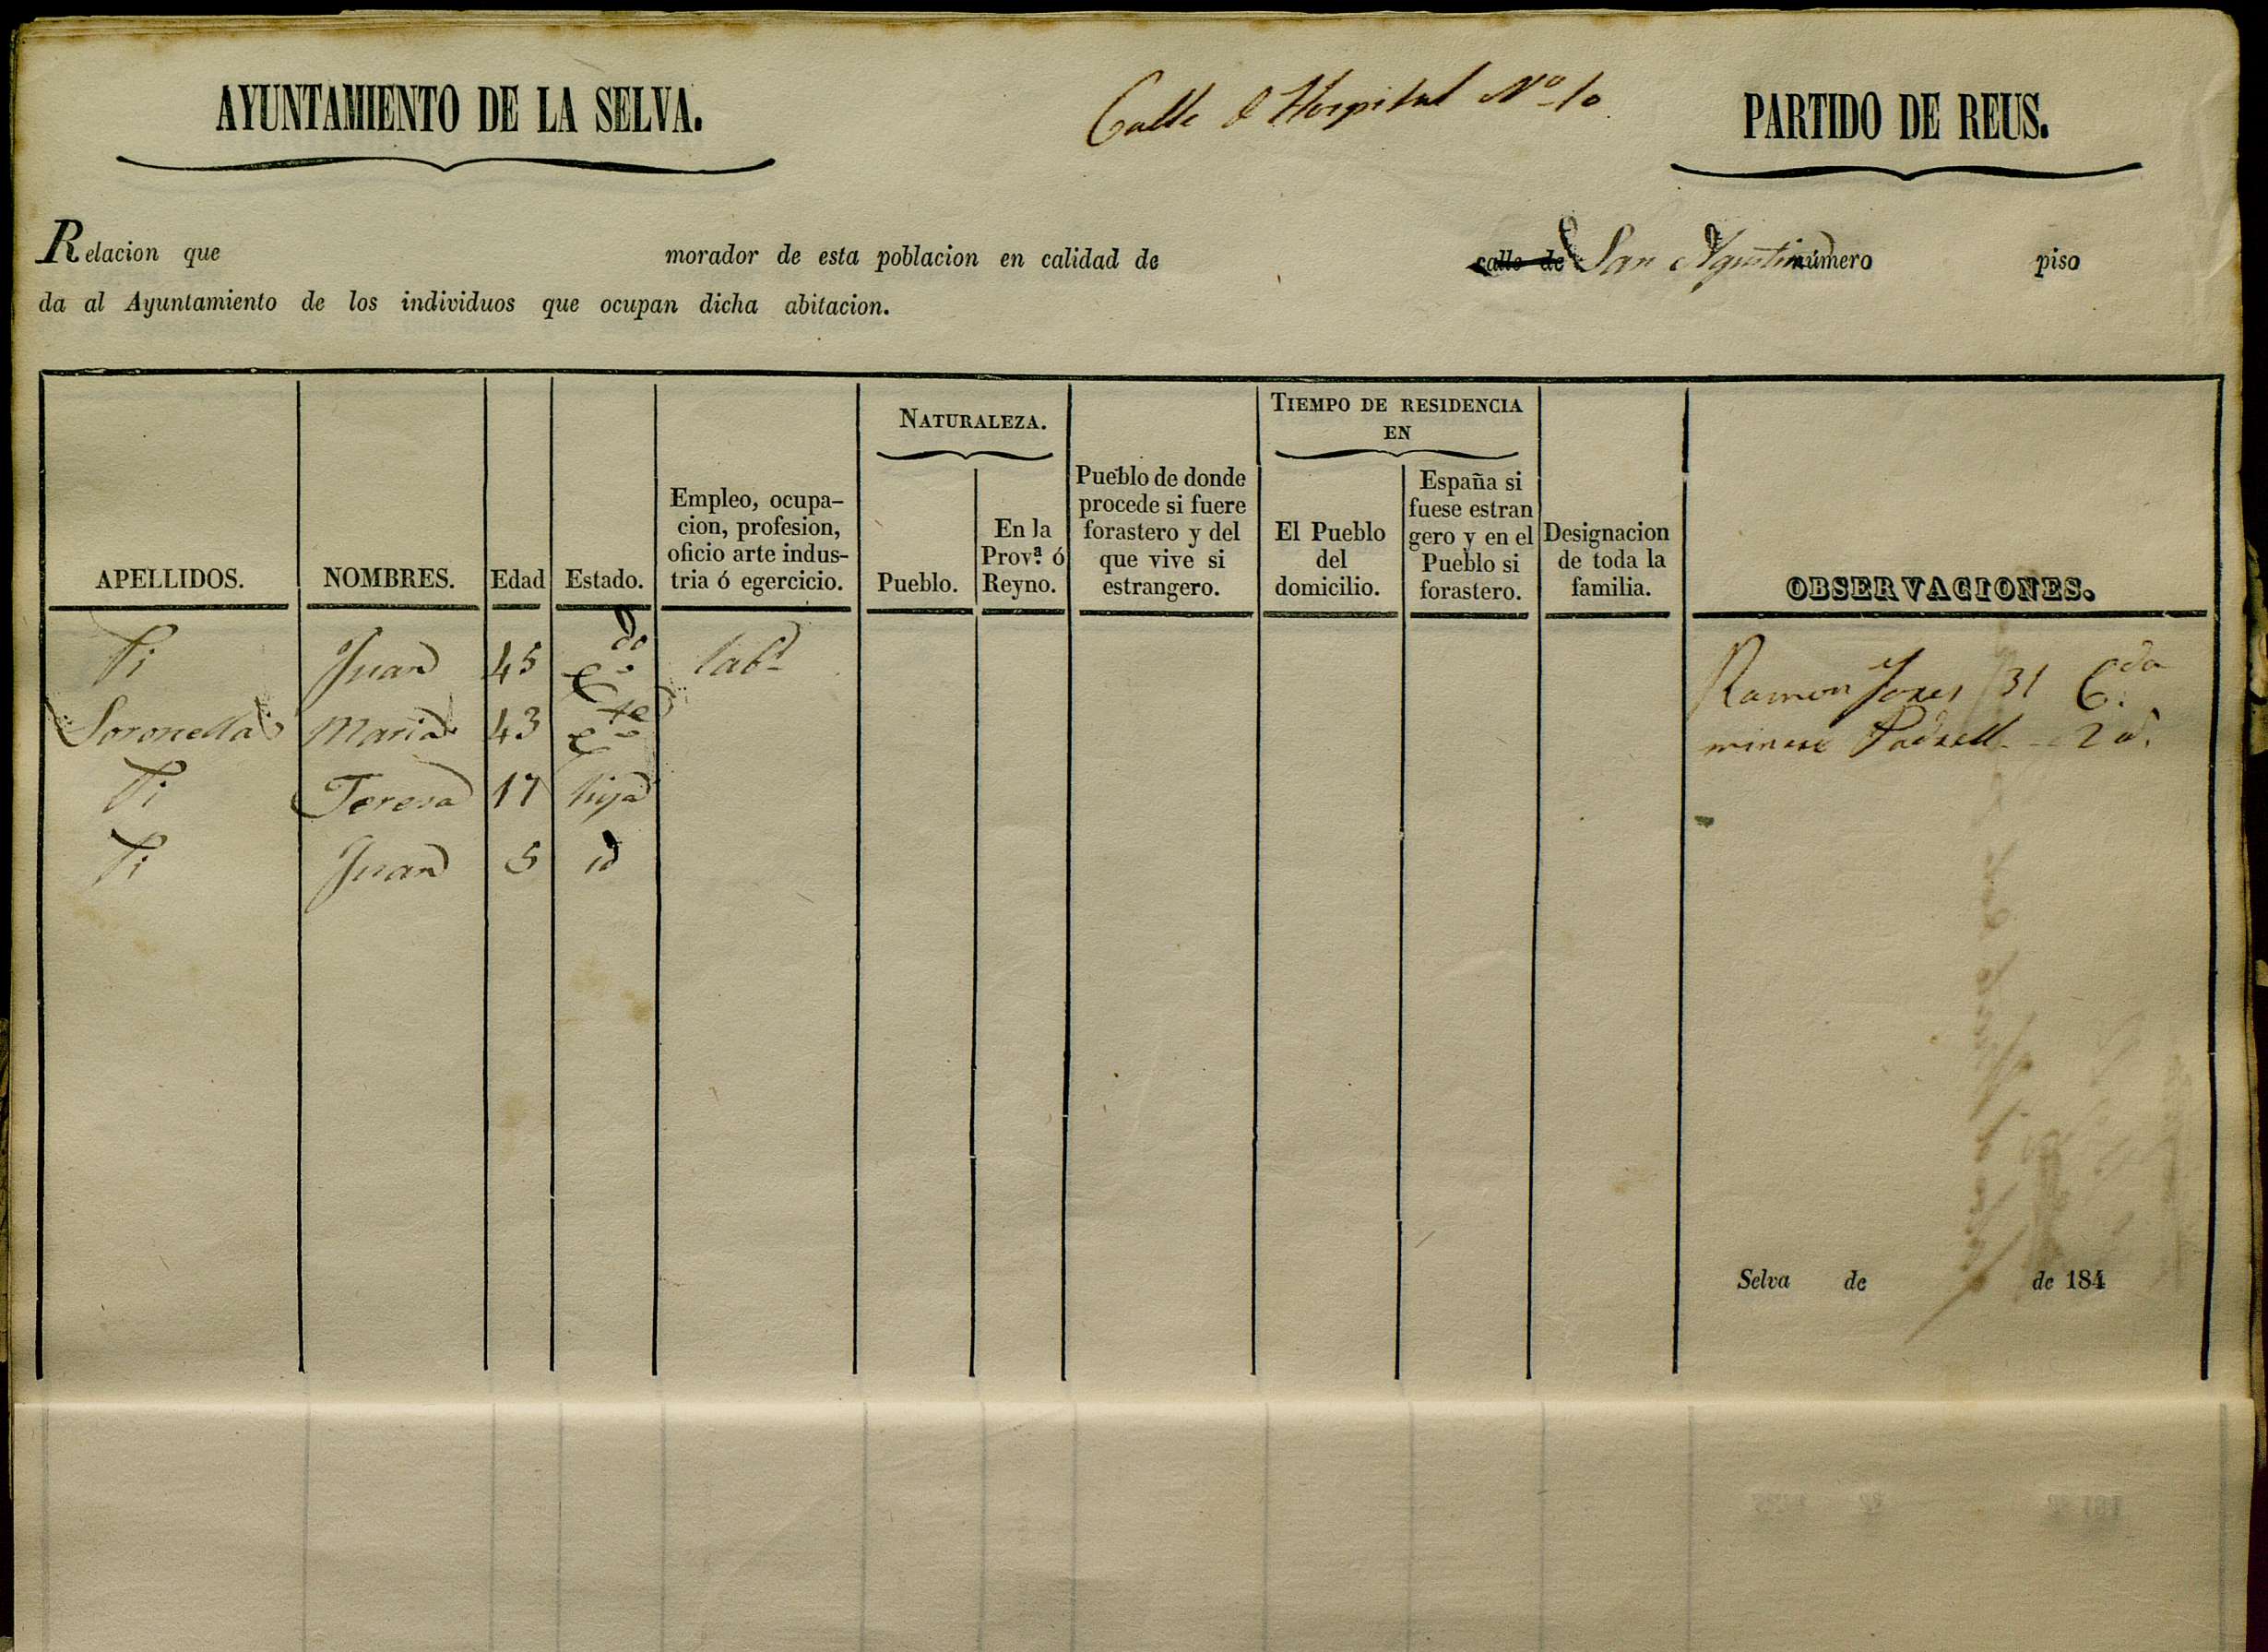 AYUNTAMIENTO DE LA SELVA.
Calle d Hospital Nº 10
PARTIDO DE REUS.
Relacion que morador de esta poblacion en calidad de calle de San Agustin número piso
da al Ayuntamiento de los individuos que ocupan dicha abitacion.
APELLIDOS.
NOMBRES.
Edad
Estado.
Empleo, ocupa-
cion, profesion,
oficio arte indus-
tria ó egercicio.
NATURALEZA.
Pueblo.
En la
Provª. ó
Reyno.
Pueblo de donde
procede si fuere
forastero y del
que vive si
estrangero.
TIEMPO DE RESIDENCIA
EN
El Pueblo
del
domicilio.
España si
fuese estran
gero y en el
Pueblo si
forastero.
Designacion
de toda la
familia.
OBSERVACIONES.
Pi Juan 45 labr
Soronella Maria 43
Pi Teresa 17 hija
Pi Juan 5 id
Ramon 31 Cda
Selva de de 184